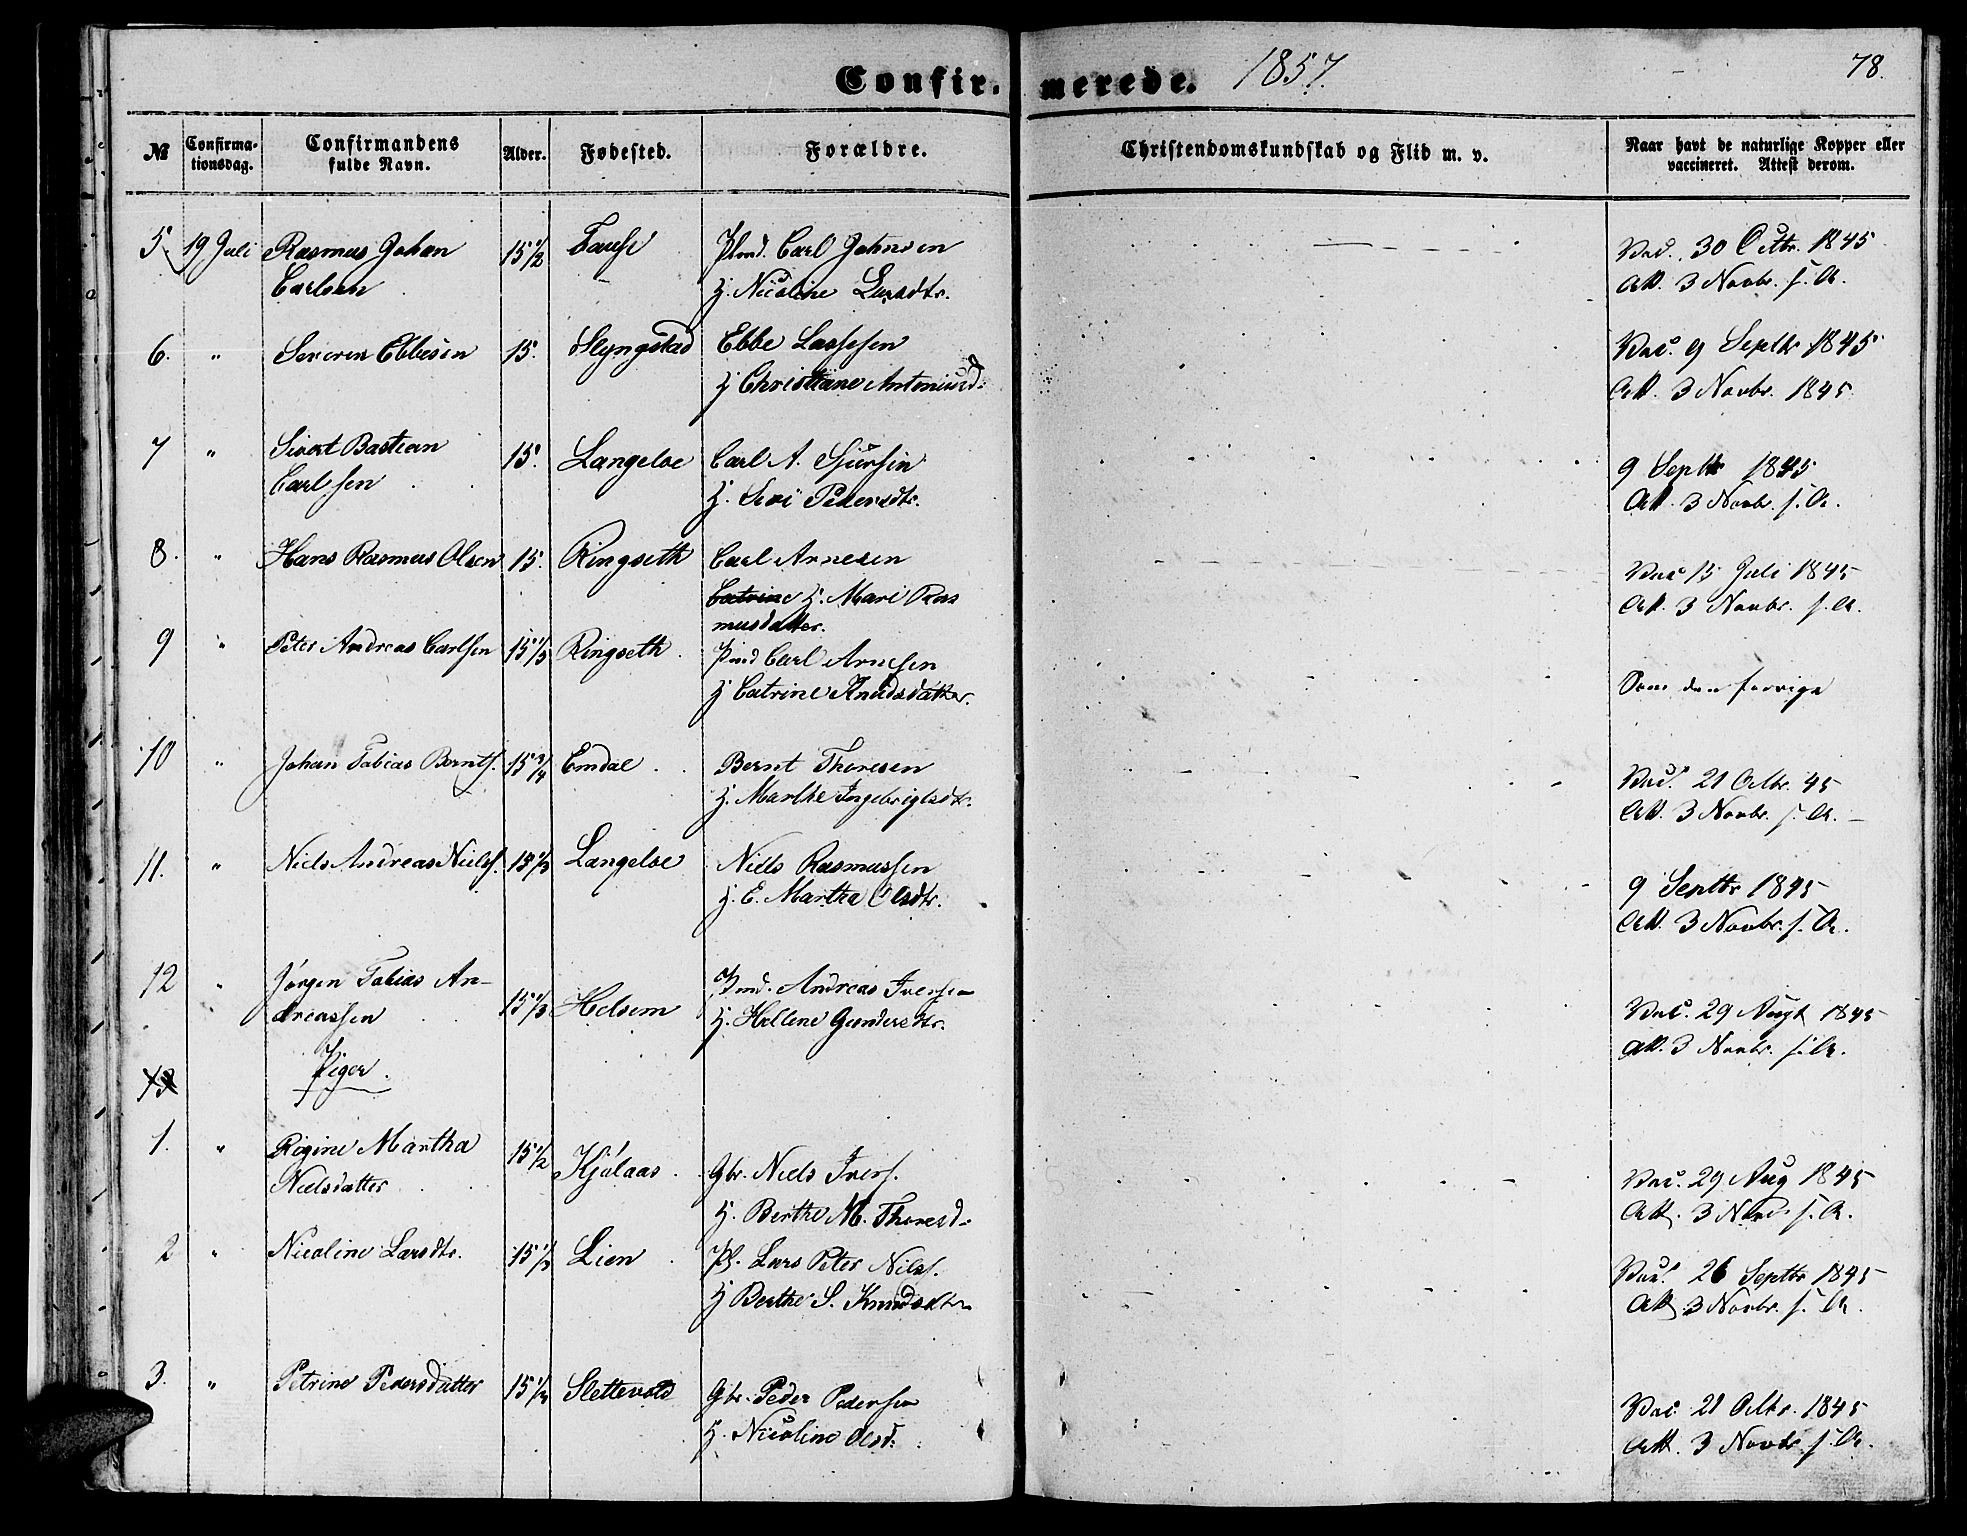 Confirmerede. 1857. 78.
№ Confirmationsdag. Confirmandens fulde Navn. Alder. Fødested. Forældre. Christendomskundskab og Flid m. v. Naar havt de naturlige Kopper eller vaccineret. Attest derom.
5. 19 Juli Rasmus Johan 15 1/2 Carl Johnsen Vac. 30 Octbr. 1845
Carlsen Nicoline Larsdtr. Att. 3 Novbr. s. A.
6. " Severin Ebbesen 15. Slyngstad Ebbe Lassesen Vac. 9 Septbr 1845
Christiane Antoniusd: Att. 3 Novbr. 1845
7 " Sivert Bastian 15. Langeloe Carl A. Sjursen 9 Septbr 1845
Carlsen Pedersdtr. Att. 3 Novbr. s. A.
8. " Hans Rasmus Olsen 15. Ringseth Carl Arnesen Vac 15 Juli 1845
Catrine H. Mari Ras Att. 3 Novbr. s. A.
musdatter.
9 " Peter Andreas Carlsen 15 1/3 Ringseth Carl Arnesen Som den forrige
H Catrine Knudsdatter.
10 " Johan Tobias Bernts. 15 3/4 Emdal Bernt Thoresen Vac. 21 Octbr. 45
H. Marthe Ingebrigtsdtr. Att. 3 Novbr. s. A.
11. " Niels Andreas Niels. 15 1/3 Langeloe Niels Rasmussen 9 Septbr 1845
H. E. Martha Olsdtr. Att. 3 Novbr. s. A.
12 " Jørgen Tobias An- 15 1/3 Helsem Andreas Iversen Vac. 29 Augt 1845
dreassen H. Hellene Gundersdtr. Att. 3 Novbr. s. A.
13 Piger.
1. " Regine Martha 15 1/2 Kjølaas Gbr. Niels Ivers. Vac. 29 Aug 1845
Nielsdatter H. Berthe M. Thoresd: Att. 3 Nov. s. A.
2 " Nicoline Larsdtr. 15 1/3 Lien Pl. Lars Peter Nils. Vac. 26 Septbr 1845
H Berthe S. Knudsdtr Att. 3 Novbr. s. A.
3. " Petrine Pedersdatter 15 1/4 Slettevold Gbr. Peder Pedersen Vac. 21 Octbr. 1845
H. Nicoline Olsd: Att. 3 Novbr. s. A.